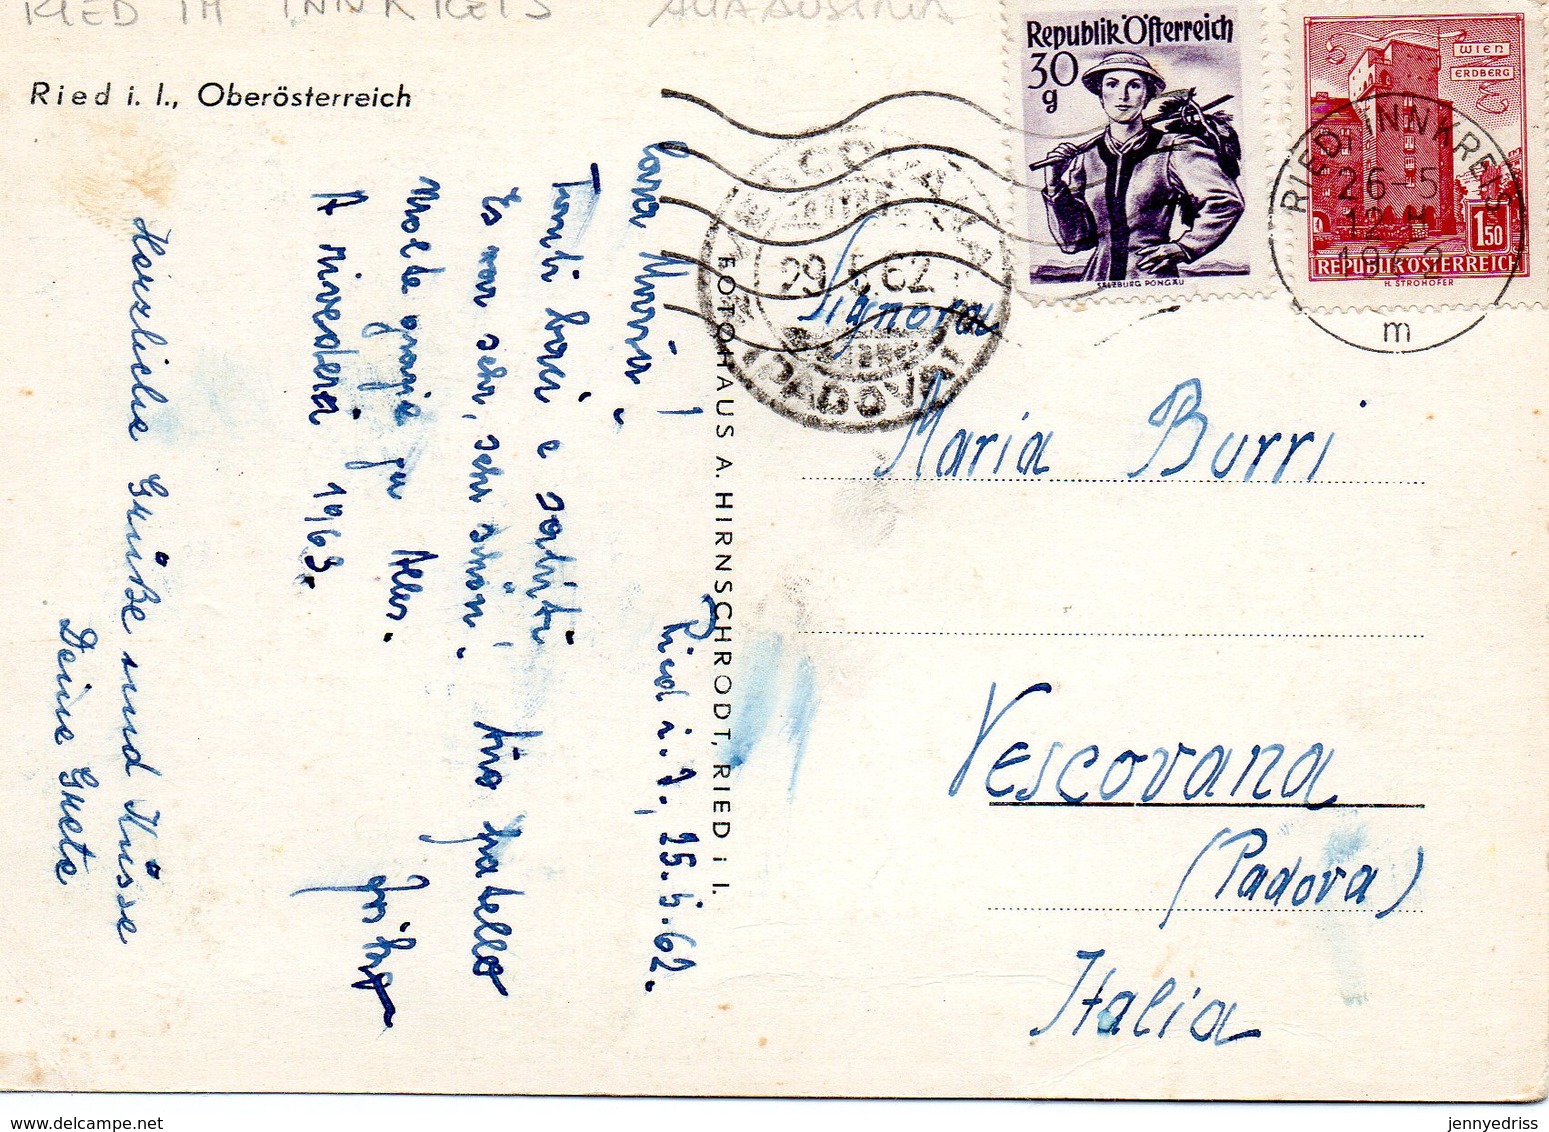 RIED IM INNKREIS ALTA AUSTRIA
Ried i. I., Oberösterreich
Republik Österreich
30 g
SALZBURG PONGAU
WIEN
ERDBERG
1.50
REPUBLIK ÖSTERREICH
H. STROHOFER
RIED INNKREIS
26-5
12-H
1962
m
VESCOVANA
29.5.62
(PADOVA)
FOTOHAUS A. HIRNSCHRODT, RIED i. I.
Ried i. I., 25.5.62.
Cara Maria!
Tanti baci e saluti
Es war sehr, sehr schön.
tuo fratello
Molte grazie für Alles.
A rivederci 1963.
Herzliche Grüße und Küsse
Deine Grete
Signora
Maria Burri
Vescovana
(Padova)
Italia
jennyedriss